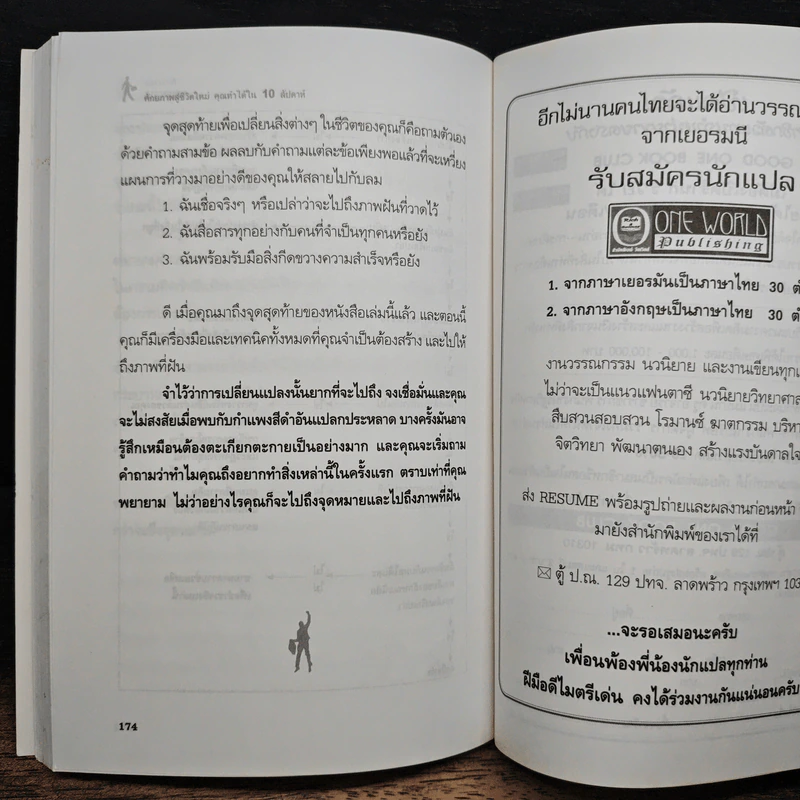 ศักยภาพสู่ชีวิตใหม่ คุณทำได้ใน 10 สัปดาห์
จุดสุดท้ายเพื่อเปลี่ยนสิ่งต่างๆ ในชีวิตของคุณก็คือถามตัวเอง
ด้วยคำถามสามข้อ ผลลบกับคำถามแต่ละข้อเพียงพอแล้วที่จะเหวี่ยง
แผนการที่วางมาอย่างดีของคุณให้สลายไปกับลม
1. ฉันเชื่อจริงๆ หรือเปล่าว่าจะไปถึงภาพฝันที่วาดไว้
2. ฉันสื่อสารทุกอย่างกับคนที่จำเป็นทุกคนหรือยัง
3. ฉันพร้อมรับมือสิ่งกีดขวางความสำเร็จหรือยัง
ดี เมื่อคุณมาถึงจุดสุดท้ายของหนังสือเล่มนี้แล้ว และตอนนี้
คุณก็มีเครื่องมือและเทคนิคทั้งหมดที่คุณจำเป็นต้องสร้าง และไปให้
ถึงภาพที่ฝัน
จำไว้ว่าการเปลี่ยนแปลงนั้นยากที่จะไปถึง จงเชื่อมั่นและคุณ
จะไม่สงสัยเมื่อพบกับกำแพงสีดำอันแปลกประหลาด บางครั้งมันอาจ
รู้สึกเหมือนต้องตะเกียกตะกายเป็นอย่างมาก และคุณจะเริ่มถาม
คำถามว่าทำไมคุณถึงอยากทำสิ่งเหล่านี้ในครั้งแรก ตราบเท่าที่คุณ
พยายาม ไม่ว่าอย่างไรคุณก็จะไปถึงจุดหมายและไปถึงภาพที่ฝัน
174
อีกไม่นานคนไทยจะได้อ่านวรรณ
จากเยอรมนี
รับสมัครนักแปล
ONE WORLD
Publishing
1. จากภาษาเยอรมันเป็นภาษาไทย 30 ตำ
2. จากภาษาอังกฤษเป็นภาษาไทย 30 ตำ
งานวรรณกรรม นวนิยาย และงานเขียนทุกแ
ไม่ว่าจะเป็นแนวแฟนตาซี นวนิยายวิทยาศาส
สืบสวนสอบสวน โรมานซ์ ฆาตกรรม บริหา
จิตวิทยา พัฒนาตนเอง สร้างแรงบันดาลใจ
ส่ง RESUME พร้อมรูปถ่ายและผลงานก่อนหน้า
มายังสำนักพิมพ์ของเราได้ที่
ตู้ ป.ณ. 129 ปทจ. ลาดพร้าว กรุงเทพฯ 103
...จะรอเสมอนะครับ
เพื่อนพ้องพี่น้องนักแปลทุกท่าน
ฝีมือดีไมตรีเด่น คงได้ร่วมงานกันแน่นอนครับ